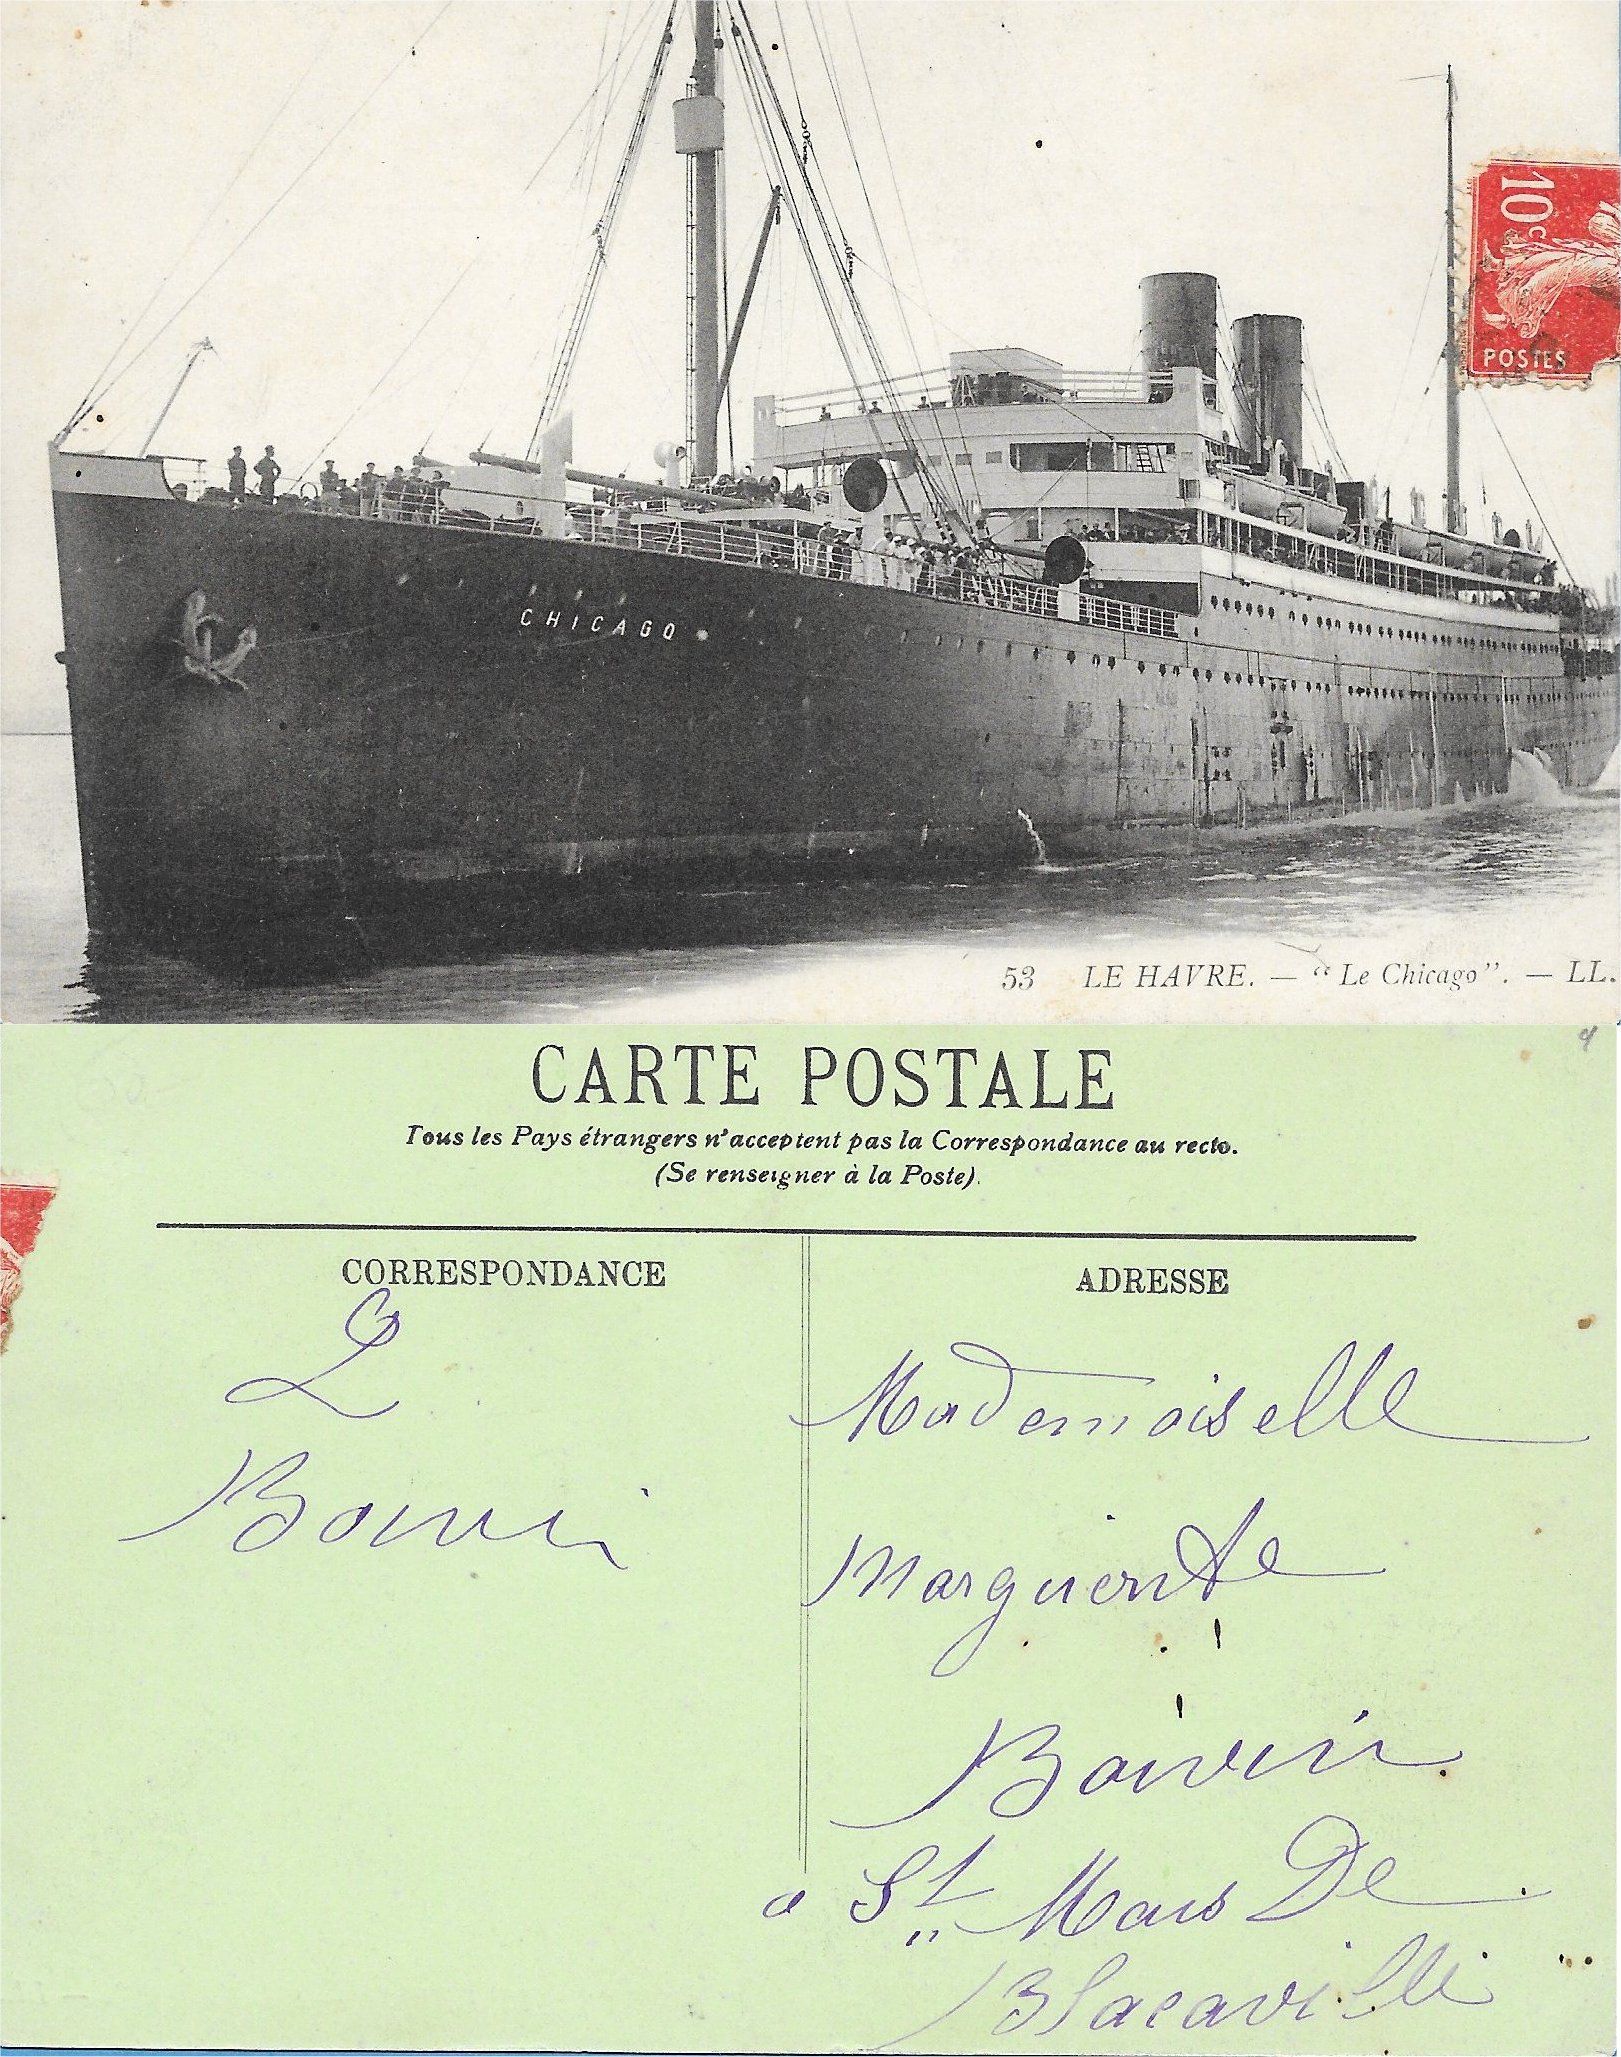 10c
POSTES
CHICAGO
53 LE HAVRE. — "Le Chicago". — LL.
CARTE POSTALE
Tous les Pays étrangers n'acceptent pas la Correspondance au recto.
(Se renseigner à la Poste).
CORRESPONDANCE
L
Boivin
ADRESSE
Mademoiselle
Marguerite
Boivin
a St Mars De
Blacaville